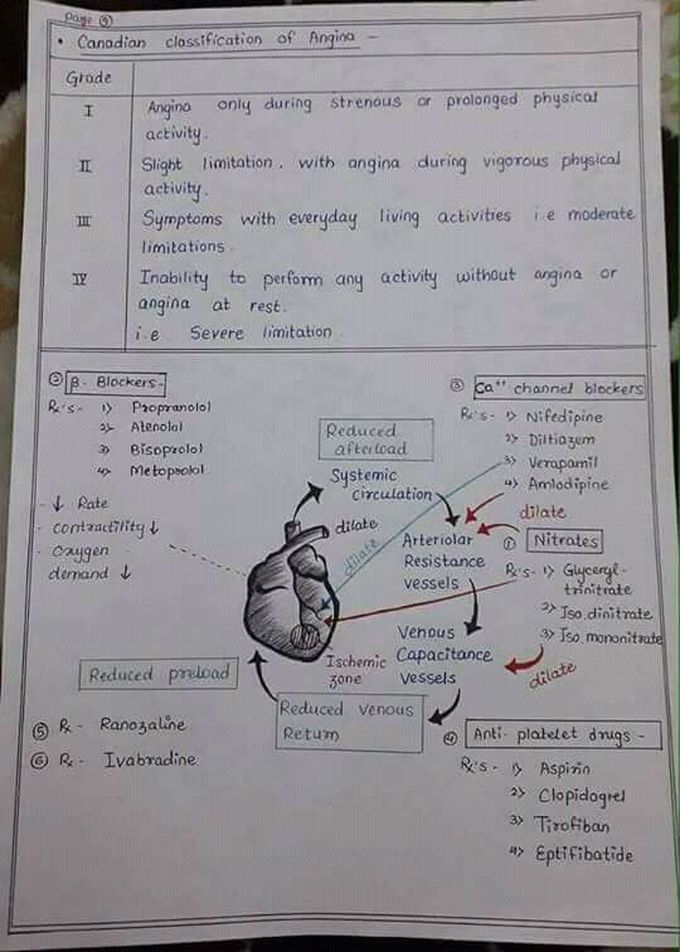 Page ③
• Canadian classification of Angina -
Grade
I Angina only during strenous or prolonged physical
activity.
II Slight limitation, with angina during vigorous physical
activity.
III Symptoms with everyday living activities i.e moderate
limitations.
IV Inability to perform any activity without angina or
angina at rest.
i.e Severe limitation.
② β- Blockers-
Rx's- 1) Propranolol
2) Atenolol
3) Bisoprolol
4) Metoprolol
- ↓ Rate
- contractility ↓
- Oxygen
demand ↓
③ Ca⁺⁺ channel blockers
Rx's- 1) Nifedipine
2) Diltiazem
3) Verapamil
4) Amlodipine
Reduced
afterload
Systemic
circulation
dilate
dilate
dilate
Arteriolar
Resistance
vessels
① Nitrates
Rx's- 1) Glyceryl-
trinitrate
2) Iso.dinitrate
3) Iso.mononitrate
Venous
Capacitance
vessels
dilate
Ischemic
zone
Reduced preload
Reduced Venous
Return
⑤ Rx- Ranozaline
⑥ Rx- Ivabradine
④ Anti- platelet drugs-
Rx's- 1) Aspirin
2) Clopidogrel
3) Tirofiban
4) Eptifibatide